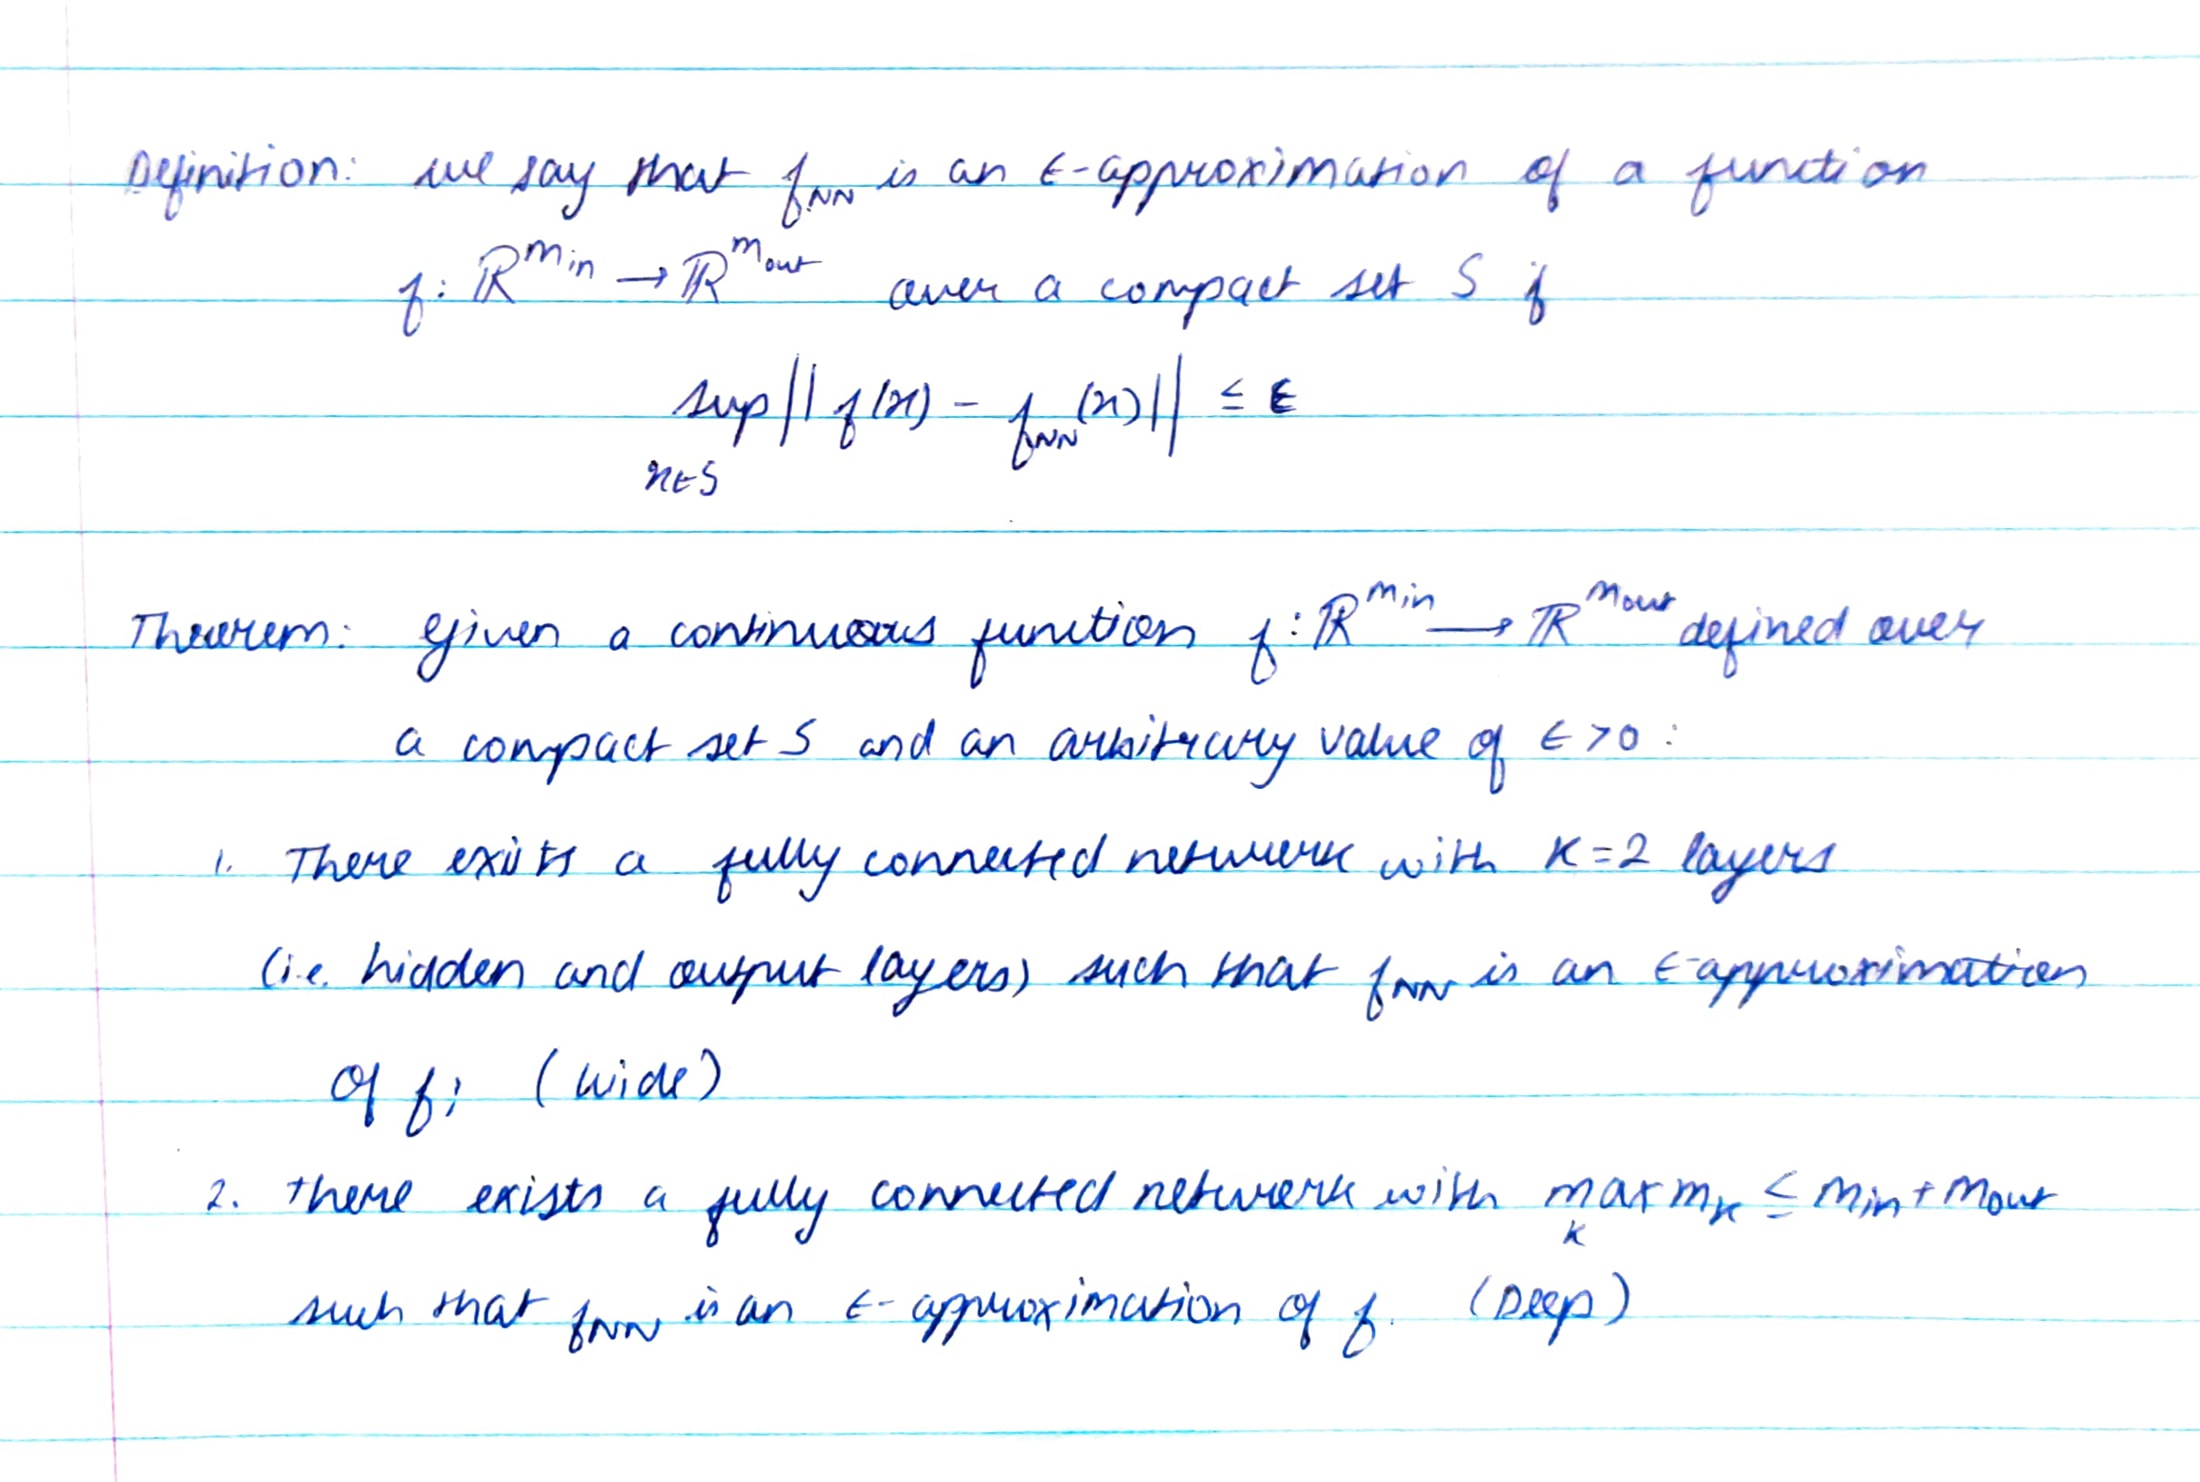 Definition: we say that f_NN is an ϵ-approximation of a function
f: ℝ^m_in → ℝ^m_out over a compact set S if
sup || f(x) - f_NN(x) || ≤ ϵ
x∈S
Theorem: Given a continuous function f: ℝ^m_in → ℝ^m_out defined over
a compact set S and an arbitrary value of ϵ>0:
1. There exists a fully connected network with K=2 layers
(i.e. hidden and output layers) such that f_NN is an ϵ-approximation
of f; (Wide)
2. There exists a fully connected network with max m_k ≤ m_in + m_out
k
such that f_NN is an ϵ-approximation of f. (Deep)